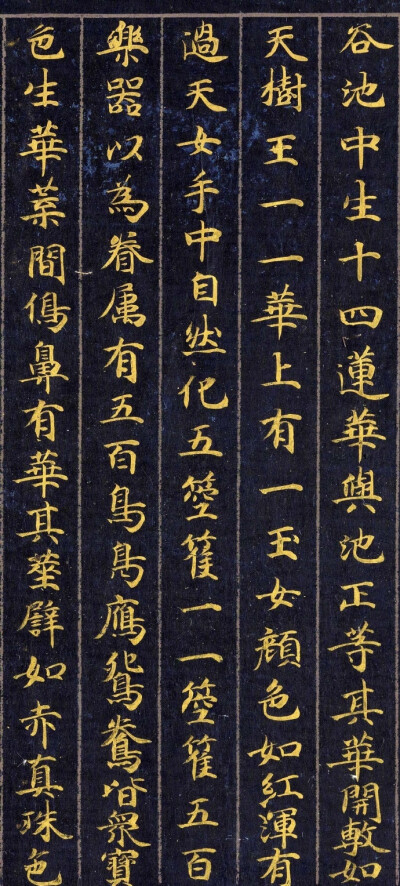 谷池中生十四蓮華與池正等其華開敷如
天樹王一一華上有一玉女顏色如紅渾有
過天女手中自然化五箜篌一一箜篌五百
樂器以為眷属有五百鳥鳧鴈鴛鴦皆衆寶
色生華葉間象鼻有華其莖譬如赤真珠色